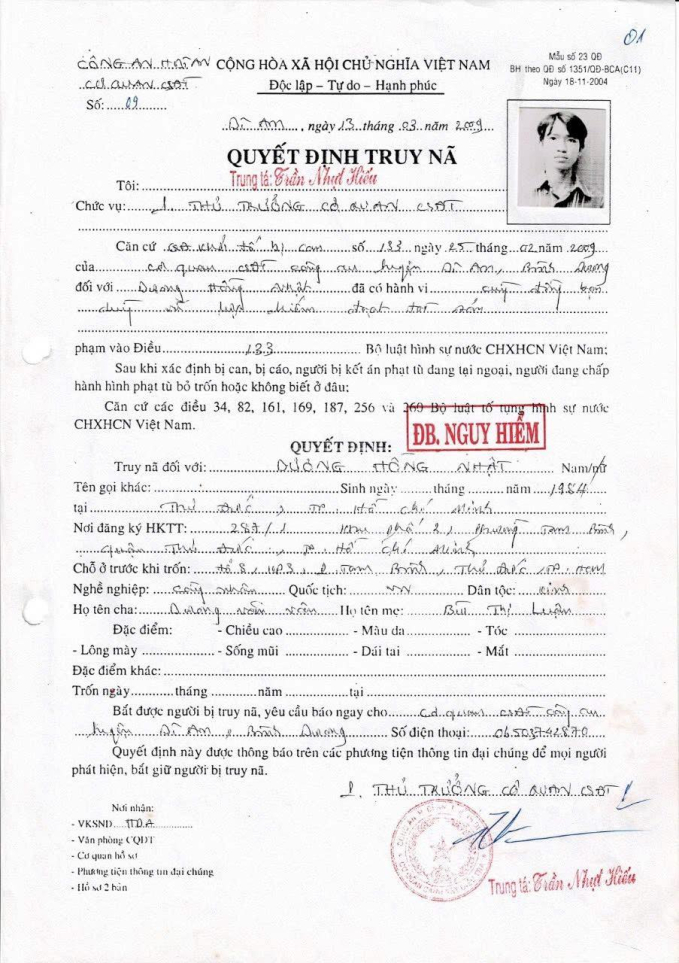 01
CÔNG AN H.DĨ AN CỘNG HÒA XÃ HỘI CHỦ NGHĨA VIỆT NAM
CƠ QUAN CSĐT Độc lập – Tự do – Hạnh phúc
Số: 09
Mẫu số 23 QĐ
BH theo QĐ số 1351/QĐ-BCA(C11)
Ngày 18-11-2004
Dĩ An, ngày 13 tháng 03 năm 2009
QUYẾT ĐỊNH TRUY NÃ
Tôi: Trung tá: Trần Nhựt Hiếu
Chức vụ: P. THỦ TRƯỞNG CƠ QUAN CSĐT
Căn cứ QĐ khởi tố bị can số 133 ngày 25 tháng 02 năm 2009
của cơ quan CSĐT công an huyện Dĩ An, Bình Dương
đối với Dương Hồng Nhật đã có hành vi cùng đồng bọn
chiếm đoạt tài sản
phạm vào Điều 133 Bộ luật hình sự nước CHXHCN Việt Nam;
Sau khi xác định bị can, bị cáo, người bị kết án phạt tù đang tại ngoại, người đang chấp
hành hình phạt tù bỏ trốn hoặc không biết ở đâu;
Căn cứ các điều 34, 82, 161, 169, 187, 256 và 260 Bộ luật tố tụng hình sự nước
CHXHCN Việt Nam.
ĐB. NGUY HIỂM
QUYẾT ĐỊNH:
Truy nã đối với: DƯƠNG HỒNG NHẬT Nam/nữ
Tên gọi khác: Sinh ngày tháng năm 1984
tại Thủ Đức, TP. Hồ Chí Minh
Nơi đăng ký HKTT: 287/1 Khu phố 2, phường Tam Bình,
quận Thủ Đức, TP. Hồ Chí Minh
Chỗ ở trước khi trốn: tổ 8, KP3, P. Tam Bình, Thủ Đức, TP. HCM
Nghề nghiệp: công nhân Quốc tịch: VN Dân tộc: kinh
Họ tên cha: Dương Văn Họ tên mẹ: Bùi Thị Luận
Đặc điểm: - Chiều cao - Màu da - Tóc
- Lông mày - Sống mũi - Dái tai - Mắt
Đặc điểm khác:
Trốn ngày tháng năm tại
Bắt được người bị truy nã, yêu cầu báo ngay cho cơ quan CSĐT công an
huyện Dĩ An, Bình Dương Số điện thoại: 06503742870
Quyết định này được thông báo trên các phương tiện thông tin đại chúng để mọi người
phát hiện, bắt giữ người bị truy nã.
P. THỦ TRƯỞNG CƠ QUAN CSĐT
Nơi nhận:
- VKSND H.D.A
- Văn phòng CQĐT
- Cơ quan hồ sơ
- Phương tiện thông tin đại chúng
- Hồ sơ 2 bản
Trung tá: Trần Nhựt Hiếu